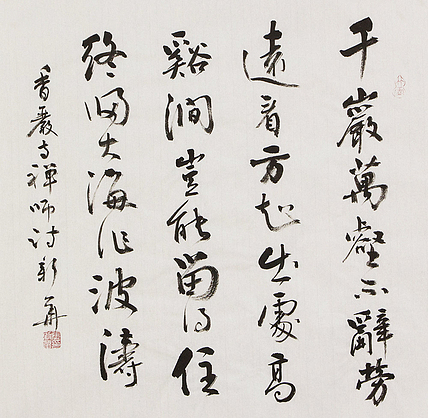 千巖萬壑不辭勞
遠看方知出處高
谿澗豈能留得住
終歸大海作波濤
香嚴寺禪師詩新